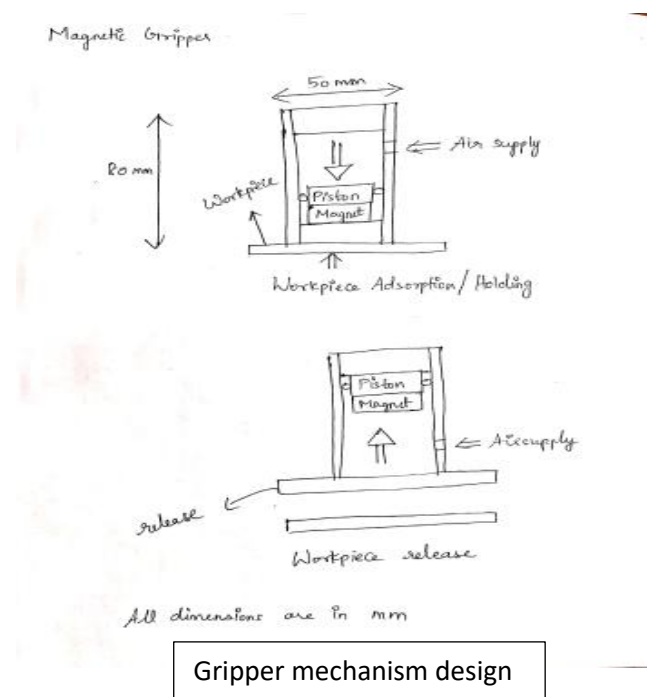 Magnetic Gripper
50 mm
Air supply
80 mm
Workpiece
Piston
Magnet
Workpiece Adsorption/Holding
Piston
Magnet
Air supply
release
Workpiece release
All dimensions are in mm
Gripper mechanism design